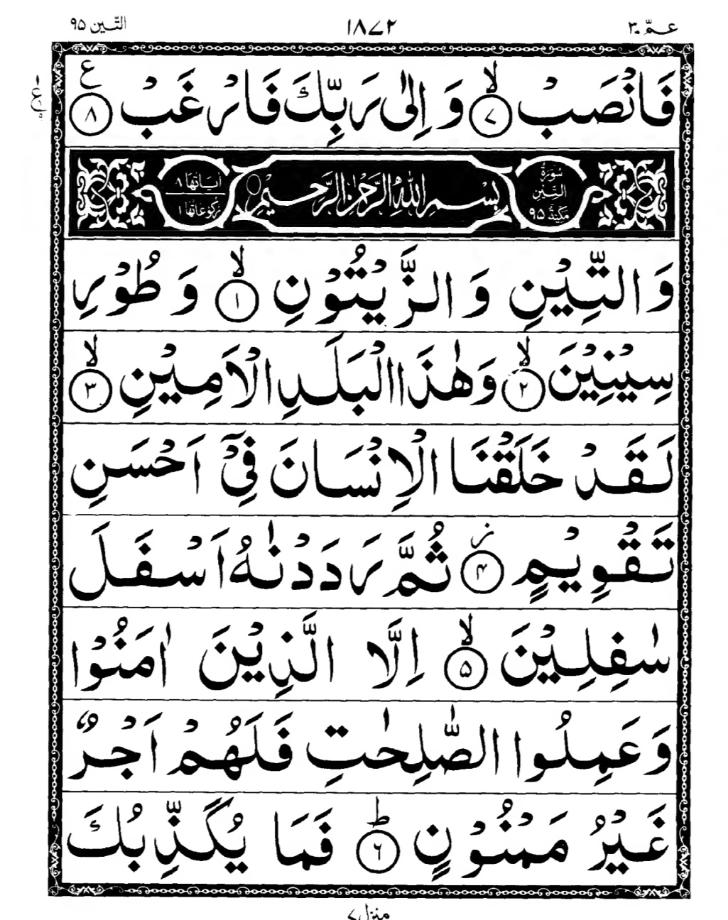 عـمّ ٣٠
١٨٧٢
التّين ٩٥
فَانْصَبْ ۙ﴿٧﴾ وَ اِلٰی رَبِّكَ فَارْغَبْ ﴿٨﴾ ع
ع
سُوْرَةُ التِّيْنِ مَكِّيَّةٌ ٩٥
بِسْمِ اللهِ الرَّحْمٰنِ الرَّحِيْمِ
اٰيَاتُهَا ٨ رُكُوْعَاتُهَا ١
وَ التِّيْنِ وَ الزَّيْتُوْنِ ۙ﴿١﴾ وَ طُوْرِ
سِيْنِيْنَ ۙ﴿٢﴾ وَهٰذَا الْبَلَدِ الْاَمِيْنِ ۙ﴿٣﴾
لَقَدْ خَلَقْنَا الْاِنْسَانَ فِیْۤ اَحْسَنِ
تَقْوِيْمٍ ؗ﴿۴﴾ ثُمَّ رَدَدْنٰهُ اَسْفَلَ
سٰفِلِيْنَ ۙ﴿۵﴾ اِلَّا الَّذِيْنَ اٰمَنُوْا
وَعَمِلُوا الصّٰلِحٰتِ فَلَهُمْ اَجْرٌ
غَيْرُ مَمْنُوْنٍ ؕ﴿٦﴾ فَمَا يُكَذِّبُكَ
منزل ٧